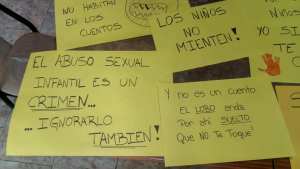 NO HABITAN
EN LOS
CUENTOS
LOS NIÑOS
NO
MIENTEN!
YO SI
TE
EL ABUSO SEXUAL
INFANTIL ES UN
CRIMEN...
...IGNORARLO
TAMBIEN!
Y no es un cuento
EL LOBO anda
Por ahí SUELTO
Que NO Te Toque!